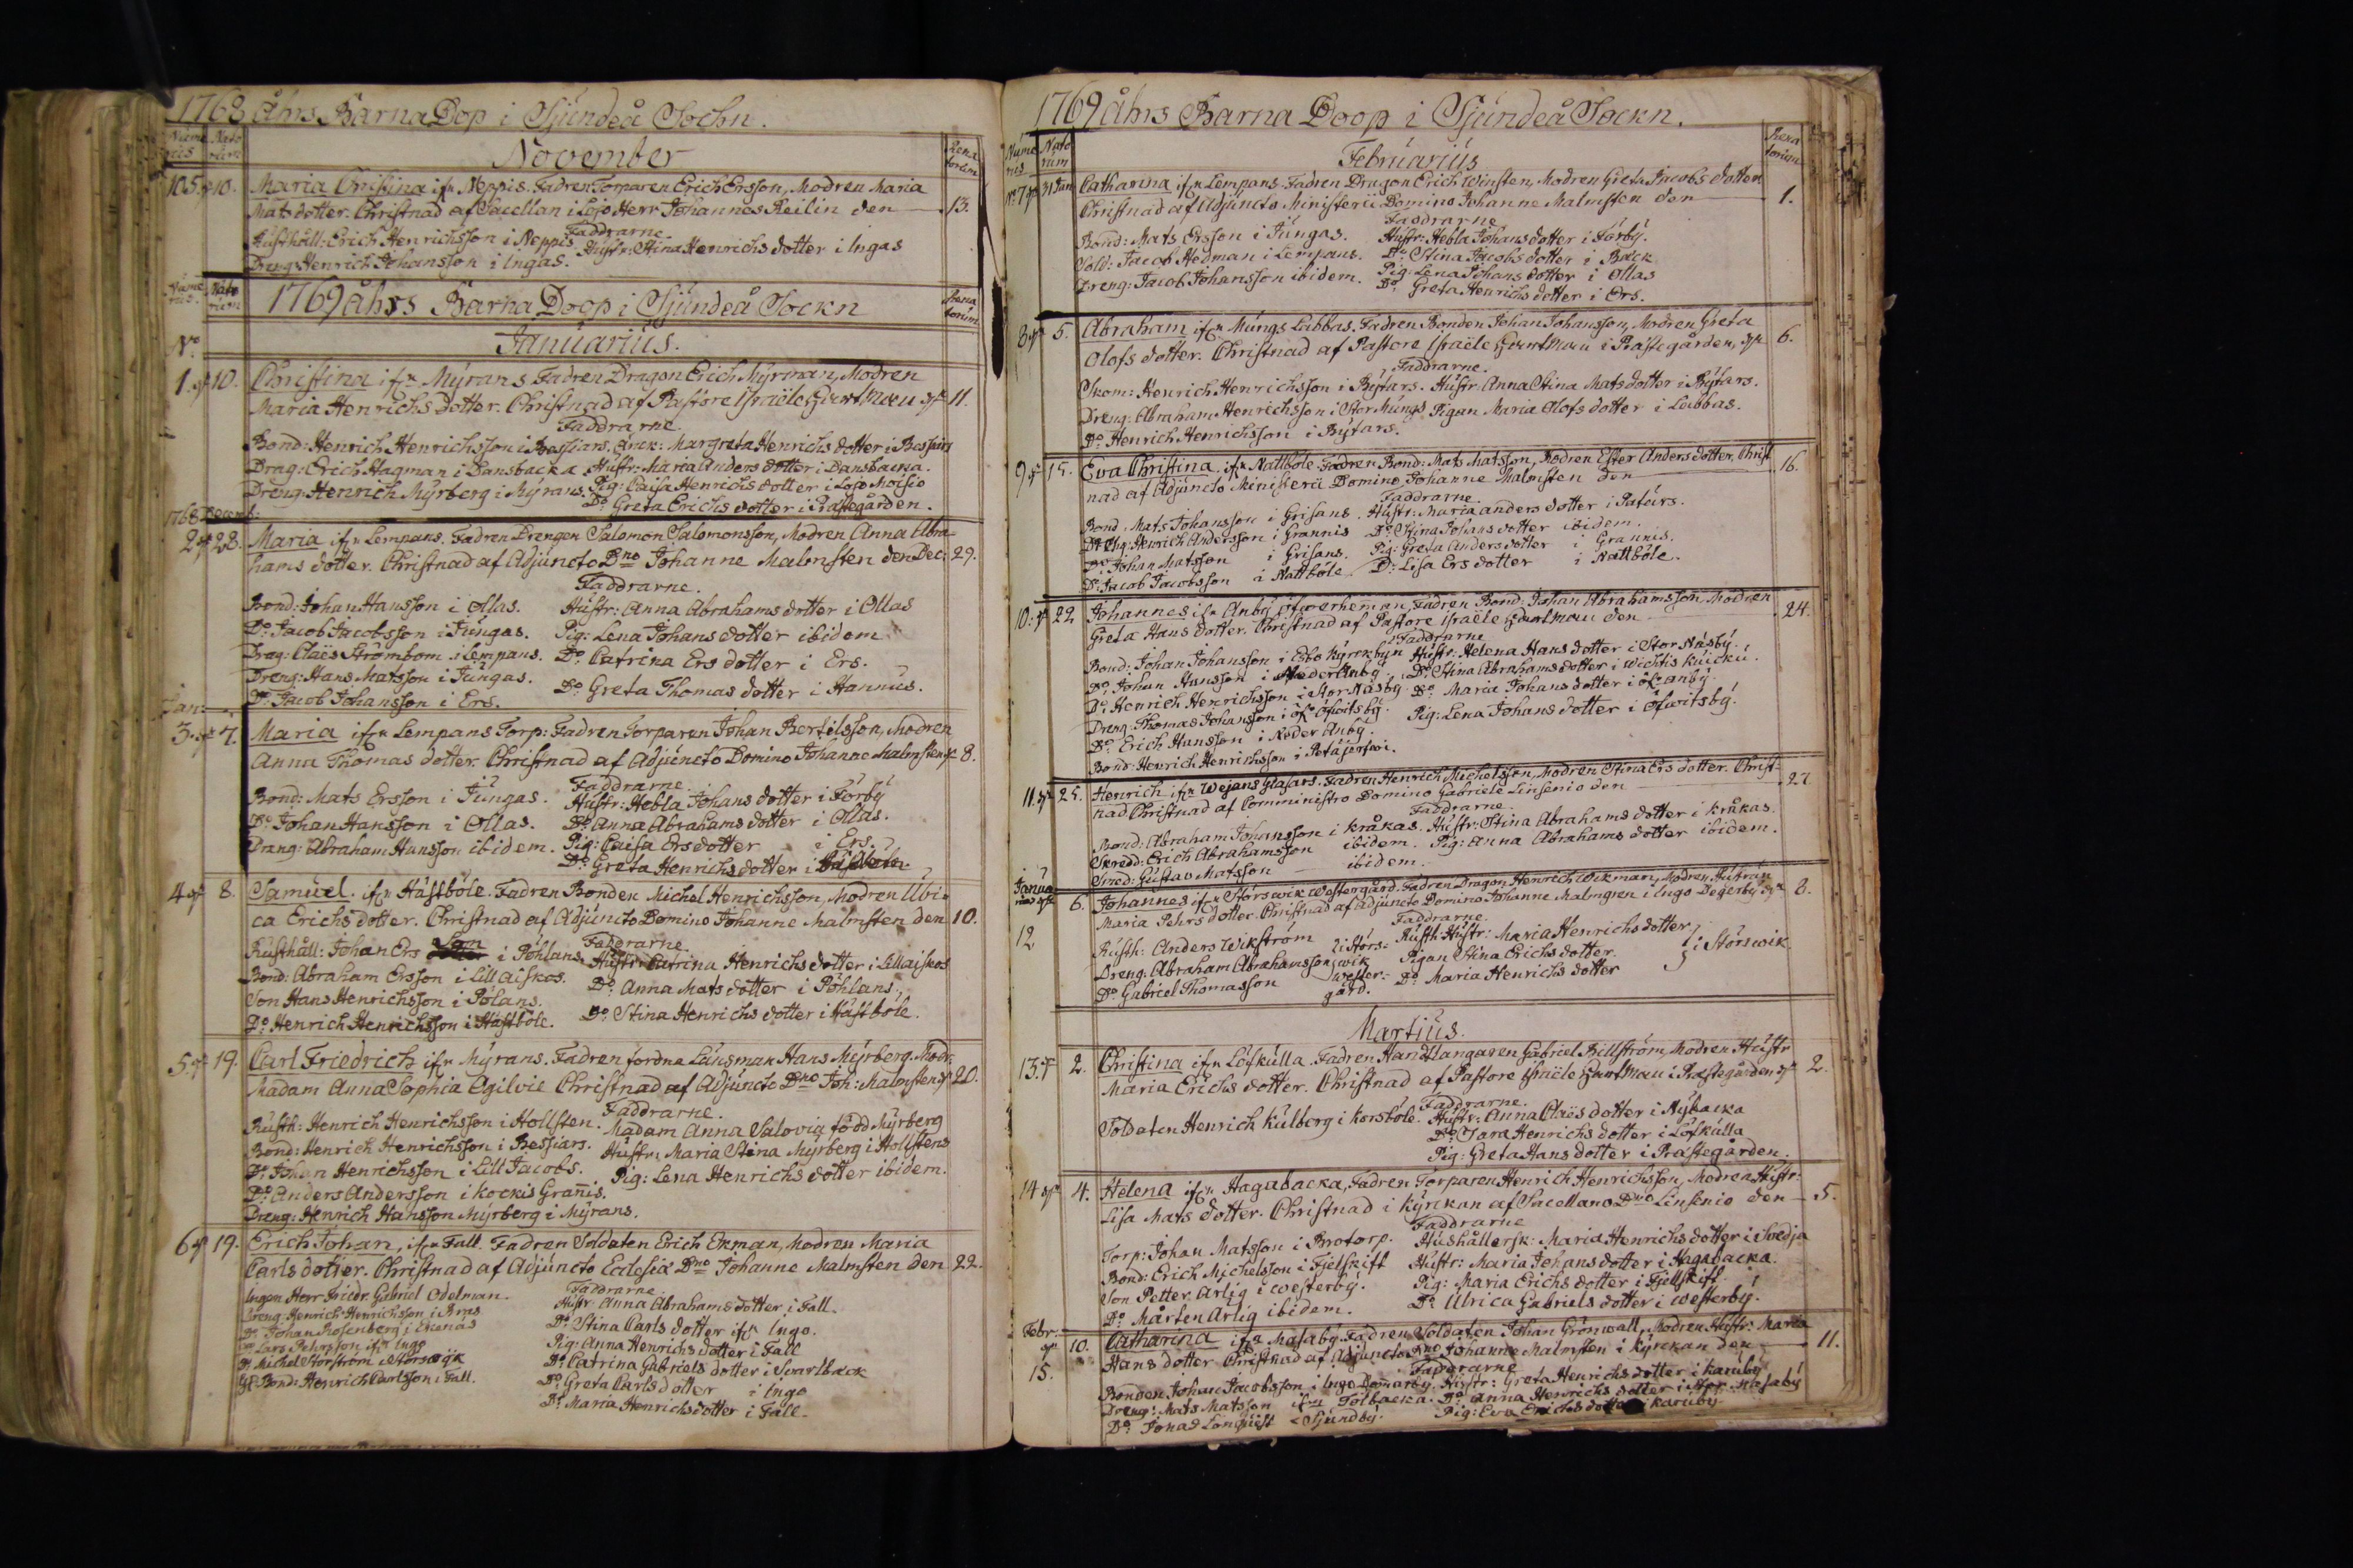 1768 åhrs Barna Dop i Sjundeå Sochn.
Nume rus Nato rum November Rena torum
105. 10. Maria Christina ifrn Neppis. Fadren Torparen Erich Ersson, Modren Maria
Mats dotter. Christnad af Sacellan i Lojo Herr Johannes Reilin den 13.
Faddrarne.
Rusthåll: Erich Henrichsson i Neppis. Hustr: Stina Henrichs dotter i Ingas
Dreng Henrich Johansson i Ingas.
Nume rus. Nato rum 1769 åhrs Barna Doop i Sjundeå Sockn Rena torum
No. Januarius.
1. 10. Christina ifrn Myrans Fadren Dragon Erich Myrman, Modren
Maria Henrichs dotter. Christnad af Pastore Israële 11.
Faddrarne
Bond: Henrich Henrichsson i Bessiars. Enck: Margreta Henrichs dotter i Bessiars
Drag: Erich Hagman i Dansbacka Hustr: Maria Anders dotter i Dansbacka.
Dreng Henrich Myrberg i Myrans. Pig: Caisa Henrichs dotter i Lojo Moisio
Do Greta Erichs dotter i Prästegården.
1768 Decemb:
2 28. Maria ifrn Lempans. Fadren Drengen Salomon Salomonsson, Modren Anna Abra-
hams dotter. Christnad af Adjuncto Dno Johanne Malmsten den Dec. 29.
Faddrarne.
Bond: Johan Hansson i Ollas. Hustr: Anna Abrahams dotter i Ollas
Do Jacob Jacobsson i Jungas. Pig: Lena Johans dotter ibidem
Drag: Claës Strömbom i Lempans. Do Catrina Ers dotter i Ers.
Dreng: Hans Matsson i Jungas. Do Greta Thomas dotter i Hannus.
Do Jacob Johansson i Ers.
Jan:
3. 7. Maria ifrn Lempans Torp: Fadren Torparen Johan Bertilsson, Modren
Anna Thomas dotter. Christnad af Adjuncto Domino Johanne Malmsten 8.
Faddrarne
Bond: Mats Ersson i Jungas. Hustr: Hebla Johans dotter i Förby
Do Johan Hansson i Ollas. Do Anna Abrahams dotter i Ollas.
Dräng: Abraham Hansson ibidem. Pig: Caisa Ers dotter i Ers.
Do Greta Henrichs dotter i
4 8. Samuel. ifrn Hästböle. Fadren Bonden Michel Henrichsson, Modren Ulri-
ca Erichs dotter. Christnad af Adjuncto Domino Johanne Malmsten den 10.
Faddrarne
Rusthåll: Johan Ers Son i Pöhlans Hustr: Catrina Henrichs dotter i Lillaiskos
Bond: Abraham Ersson i Lill aiskos. Do Anna Mats dotter i Pöhlans.
Son Hans Henrichsson i Pölans. Do Stina Henrichs dotter i Hästböle.
Do Henrich Henrichsson i Hästböle.
5 19. Carl Friedrich ifrn Myrans. Fadren fordna Länsman Hans Myrberg. Modr:
Madam Anna Sophia Ogilvie Christnad af Adjuncto Dno Joh: Malmsten 20.
Faddrarne.
Rusth: Henrich Henrichsson i Hollsten. Madam Anna Salovia född Myrberg
Bond: Henrich Henrichsson i Bessiars. Hustru Maria Stina Myrberg i Hollstens
Do Johan Henrichsson i Lill Jacobs. Pig: Lena Henrichs dotter ibidem.
Do Anders Andersson i Kockis Grannis.
Dreng: Henrich Hansson Myrberg i Myrans.
6 19. Erich Johan, ifrn Fall. Fadren Soldaten Erich Ekman, Modren Maria
Carls dotter. Christnad af Adjuncto Ecclesiæ Dno Johanne Malmsten den 22.
Faddrarne.
Ingen Herr Friedr. Gabriel Odelman. Hustr: Anna Abrahams dotter i Fall.
Dreng: Henrich Henrichsson i Bras Do Stina Carls dotter ifrn Ingo.
Do Johan Rosenberg i Ekenäs Pig: Anna Henrichs dotter i Fall
Do Lars Pehrsson ifrn Ingo Do Catrina Gabriels dotter i Svartback
Do Michel Storström i Storswijk Do Greta Carls dotter i Ingo
Bond: Henrich Carlsson i Fall. Do Maria Henrichs dotter i Fall.
1769 åhrs Barna Doop i Sjundeå Sockn.
Nume rus Nato rum Februarius Rena torum
No 7 31 Jan Catharina ifrn Lempans. Fadren Dragon Erich Winsten, Modren Greta Jacobs dotter
Christnad af Adjuncto Ministerii Domino Johanne Malmsten den 1.
Faddrarne
Bond: Mats Ersson i Jungas. Hustr: Hebla Johans dotter i Förby.
Sold: Jacob Hedman i Lempans. Do Stina Jacobs dotter i Back
Dreng: Jacob Johansson ibidem. Pig: Lena Johans dotter i Ollas
Do Greta Henrichs dotter i Ers.
8 5. Abraham ifrn Mungs Labbas. Fadren Bonden Johan Johansson, Modren Greta
Olofs dotter. Christnad af Pastore Israële i Prästegården, 6.
Faddrarne.
Skom: Henrich Henrichsson i Rytars. Hustr: Anna Stina Mats dotter i Rytars.
Dreng: Abraham Henrichsson i Stor Mungs Pigan Maria Olofs dotter i Labbas.
Do Henrich Henrichsson i Rytars.
9 15. Eva Christina ifrn Nattböle. Fadren Bond: Mats Matsson, Modren Ester Anders dotter. Christ
nad af Adjuncto Ministerii Domino Johanne Malmsten den 16.
Faddrarne.
Bond: Mats Johansson i Grisans. Hustr: Maria anders dotter i Patars.
Dräng: Henrich Andersson i Grannis Do Stina Johans dotter ibidem.
Do Johan Matsson i Grisans. Pig: Greta Anders dotter i Grannis.
Do Jacob Jacobsson i Nattböle. D: Lisa Ers dotter i Nattböle.
10: 22 Johannes ifrn Anby Fadren Bond: Johan Abrahamsson, Modren
Greta Hans dotter. Christnad af Pastore Israële den 24.
Faddrarne
Bond: Johan Johansson i Esbo Kyrckbyn Hustr: Helena Hans dotter i Stor Näsby.
Do Johan Hansson i Neder Anby. Do Stina Abrahams dotter i Wichtis Kuicku.
Do Henrich Henrichsson i Stor Näsby. Do Maria Johans dotter i öfr anby.
Dreng: Thomas Johansson i öfr Ofwitsby. Pig: Lena Johans dotter i ofwitsby.
Do Erich Hansson i Neder Anby.
Bond: Henrich Henrichsson i
11. 25. Henrich ifrn Wejans Glasars. Fadren Henrich Michelsson, Modren Stina Ers dotter. Christ-
nad Christnad af Comministro Domino Gabriele Linsenio den 27
Faddrarne
Bond: Abraham Johansson i Kråkas. Hustr: Stina Abrahams dotter i Kråkas.
Skredd: Erich Abrahamsson ibidem. Pig: Anna Abrahams dotter ibidem.
Smed: Gustav Matsson ibidem.
Janua rius 6. Johannes ifrn Störswik Westergård. Fadren Dragon Henrich Wikman, Modren Hustrun
12 Maria Pehrs dotter. Christnad af adjuncto Domino Johanne Malmgren i Ingo Degerby 8.
Faddrarne.
Rusth: Anders Wikström i Störs- Rusth: Hustr: Maria Henrichs dotter
Dreng: Abraham Abrahamsson wik Pigan Stina Erichs dotter. i Störswik
Do Gabriel Thomasson Wester- gård. Do Maria Henrichs dotter
Martius.
13. 2. Christina ifrn Löfkulla. Fadren Handtlangaren Gabriel Billström, Modren Hustr
Maria Erichs dotter. Christnad af Pastore Israële i Prestegården 2.
Faddrarne.
Soldaten Henrich Kulberg i Korsböle. Hustr: Anna Claës dotter i Nybacka
Do Sara Henrichs dotter i Löfkulla
Pig: Greta Hans dotter i Prästegården.
14 4. Helena ifrn Hagabacka, Fadren Torparen Henrich Henrichsson, Modren Hustr:
Lisa Mats dotter. Christnad i Kyrckan af Sacellano Dno Linsenio den 5.
Faddrarne
Torp: Johan Matsson i Brotorp. Hushållersk: Maria Henrichs dotter i Swedja
Bond: Erich Michelsson i Fjelskift Hustr: Maria Johans dotter i Hagabacka.
Son Petter Arlig i westerby. Pig: Maria Erichs dotter i Fjellskift.
Do Mårten Arlig ibidem. Do Ulrica Gabriels dotter i westerby.
Febr:
10. Catharina ifrn Masaby Fadren Soldaten Johan Grönwall, Modren Hustr: Maria
15. Hans dotter Christnad af Adjuncto Dno Johanne Malmsten i Kyrckan den 11.
Faddrarne
Bonden Johan Jacobsson i Ingo Domarby. Hustr: Greta Henrichs dotter i Karuby
Dreng: Mats Matsson ifrn Tölbacka. Do Anna Henrichs dotter i Masaby
Do Jonas Lönquist Sjundby. Pig: Eva Erichs dotter i Karuby